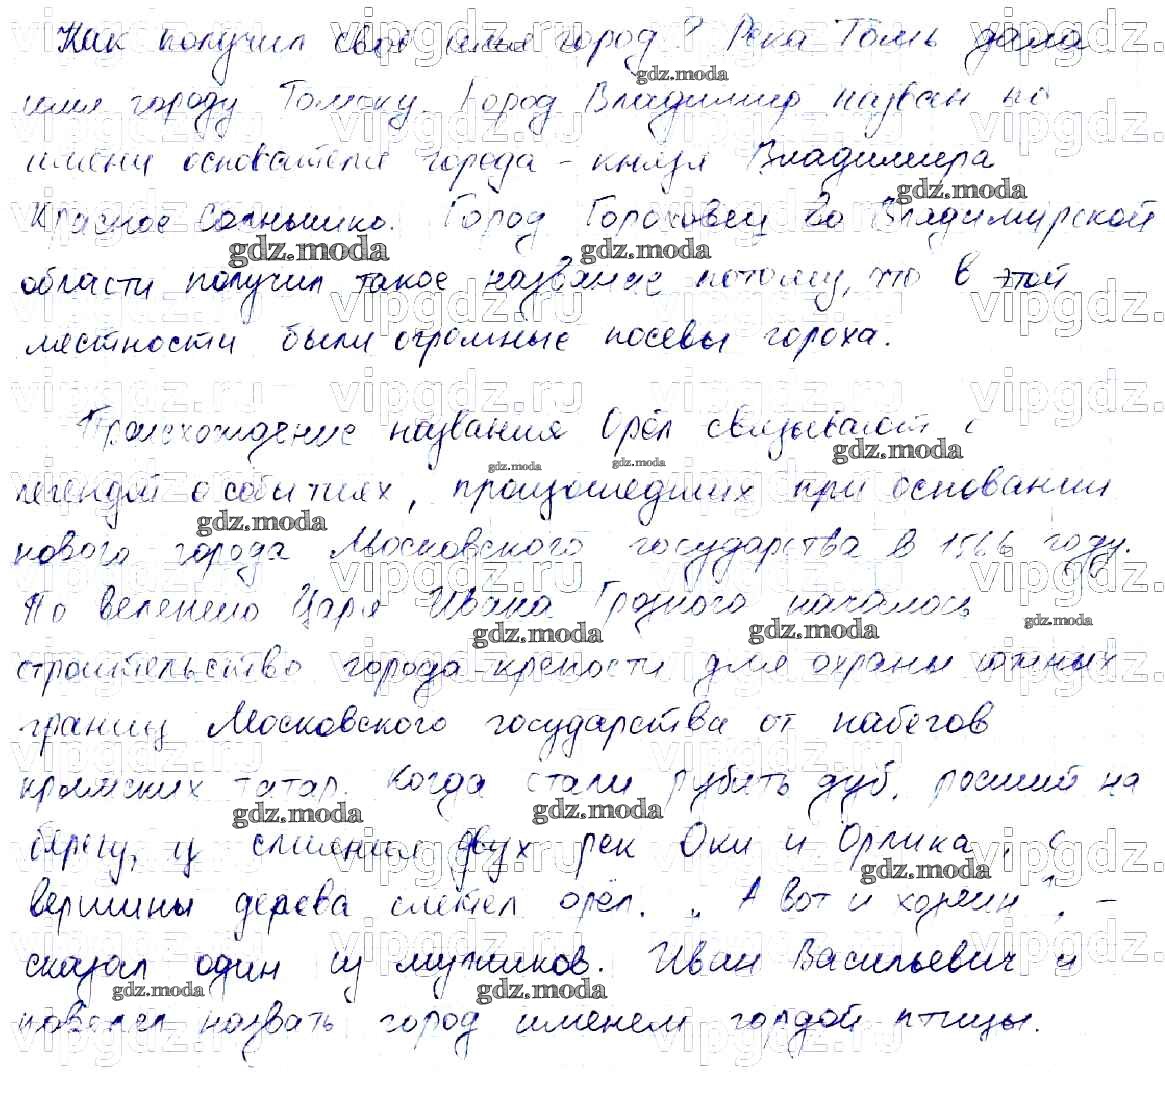 Как получил своё имя город? Река Томь дала
имя городу Томску. Город Владимир назван по
имени основателя города - князя Владимира
Красное Солнышко. Город Гороховец во Владимирской
области получил такое название потому, что в этой
местности были огромные посевы гороха.
Происхождение названия Орёл связывают с
легендой о событиях, произошедших при основании
нового города Московского государства в 1566 году.
По велению Царя Ивана Грозного началось
строительство города-крепости для охраны южных
границ Московского государства от набегов
крымских татар. Когда стали рубить дуб, росший на
берегу, у слияния двух рек Оки и Орлика, с
вершины дерева слетел орёл. „А вот и хозяин", -
сказал один из мужиков. Иван Васильевич и
повелел назвать город именем гордой птицы.
vipgdz.ru
gdz.moda